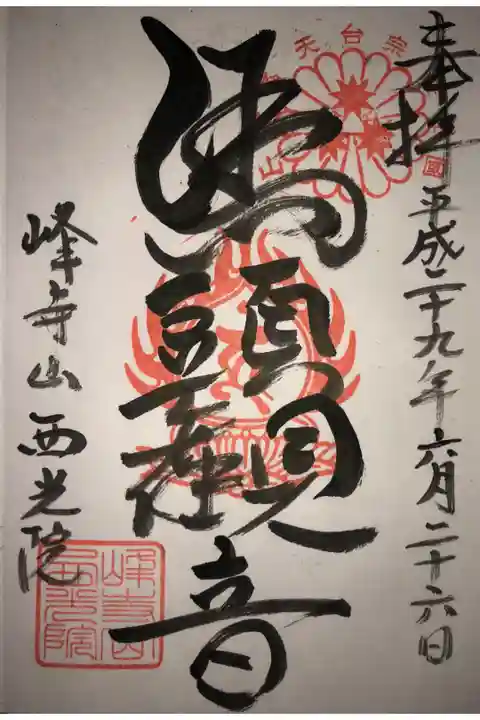 奉拝
平成二十九年六月二十六日
天台宗
馬頭觀音
峰寺山西光院
峰寺山
西光院